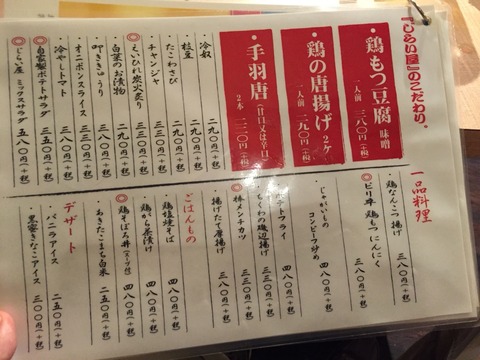 『じらい屋』のこだわり。
・鶏もつ豆腐 味噌
一人前 三八〇円(+税)
・鶏の唐揚げ 2ケ
一人前 二九〇円(+税)
・手羽唐(甘口又は辛口)
2本 二二〇円(+税)
・冷奴 二九〇円(+税)
・枝豆 二九〇円(+税)
・たこわさび 二九〇円(+税)
・チャンジャ 三三〇円(+税)
◎えいひれ炭火炙り 三三〇円(+税)
・白菜のお漬物 二九〇円(+税)
・叩ききゅうり 三八〇円(+税)
・オニオンスライス 三三〇円(+税)
・冷やしトマト 三八〇円(+税)
◎自家製ポテトサラダ 三五〇円(+税)
◎じらい屋 ミックスサラダ 五八〇円(+税)
一品料理
・鶏なんこつ揚げ 三八〇円(+税)
◎ピリ辛 鶏もつにんにく 三八〇円(+税)
・じゃがいもの コンビーフ炒め 四八〇円(+税)
ポテトフライ
ちくわの磯辺揚げ 三三〇円(+税)
◎棒メンチカツ 三三〇円(+税)
・揚げたて厚揚げ
ごはんもの
・鶏塩焼そば 四八〇円(+税)
・鶏がら茶漬け 四八〇円(+税)
◎鶏そぼろ丼(スープ付) 四八〇円(+税)
・あきたこまち白米 二五〇円(+税)
デザート
・バニラアイス 二五〇円(+税)
・黒蜜きなこアイス 三〇〇円(+税)